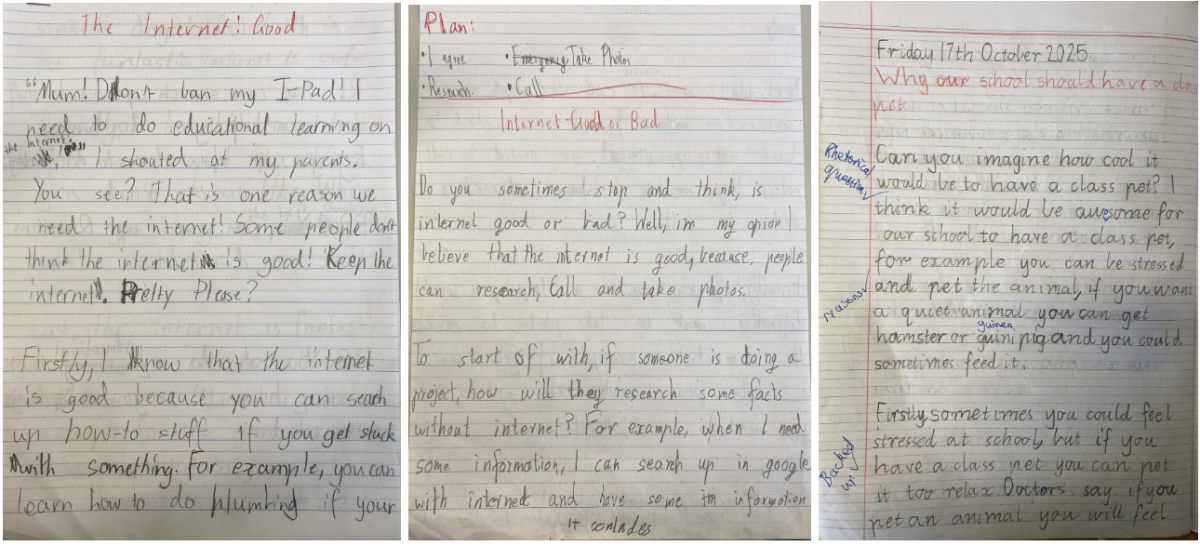 The Internet! Good
"Mum! Don't ban my I-Pad! I
need to do educational learning on
the Internet!
I shouted at my parents.
You see? That is one reason we
need the internet! Some people don't
think the internet is good! Keep the
internet. Pretty Please?
Firstly, I know that the internet
is good because you can search
up how-to stuff if you get stuck
with something. For example, you can
learn how to do plumbing if your
Plan:
• I agree • Emergency Take Photos
• Research • Call
Internet-Good or Bad
Do you sometimes stop and think, is
internet good or bad? Well, im my opion I
believe that the internet is good, because, people
can research, Call and take photos.
To start of with, if someone is doing a
project, how will they research some facts
without internet? For example, when I need
some information, I can search up in google
with interned and have some im information
it conlades
Friday 17th October 2025
Why our school should have a cla
pet
Rhetorical
question
Can you imagine how cool it
would be to have a class pet? I
think it would be awesome for
our school to have a class pet,
for example you can be stressed
reasons
and pet the animal, if you want
a quiet animal you can get
guinea
hamster or guini pig and you could
sometimes feed it.
Firstly, sometimes you could feel
stressed at school, but if you
Backed
up
have a class pet you can pet
it too relax. Doctors say if you
pet an animal you will feel